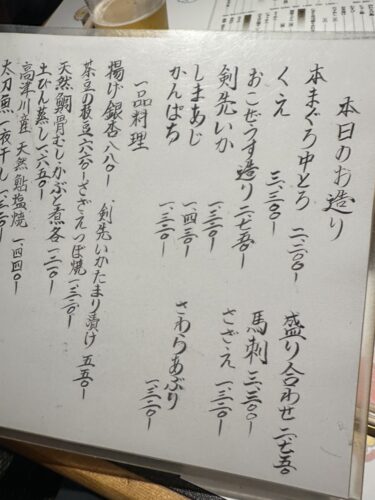 本日のお造り
本まぐろ中とろ 二、二〇〇ー
くえ 三、三〇〇ー
おこぜうす造り 二、七五〇ー
剣先いか 一、三二〇ー
しまあじ 一、四三〇ー
かんぱち 一、三二〇ー
盛り合わせ 二、七五〇
馬刺 三、三〇〇ー
さざえ 一、三二〇ー
さわらあぶり 一、三二〇ー
一品料理
揚げ銀杏 八八〇ー
剣先いかたまり漬け 五五〇ー
茶豆の枝豆 六六〇ー
さざえつぼ焼 一、三二〇ー
天然鯛骨むし・かぶと煮各
土びん蒸し 一、六五〇ー
高津川産 天然鮎塩焼 一四四〇ー
太刀魚一夜干し